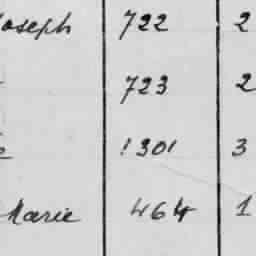 Joseph 722 2
723 2
1301 3
Marie 464 1